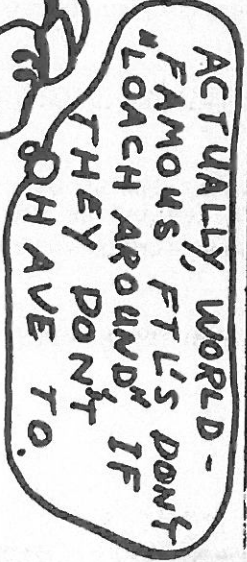 ACTUALLY, WORLD-
FAMOUS FTL'S DON'T
"LOACH AROUND" IF
THEY DON'T
HAVE TO.